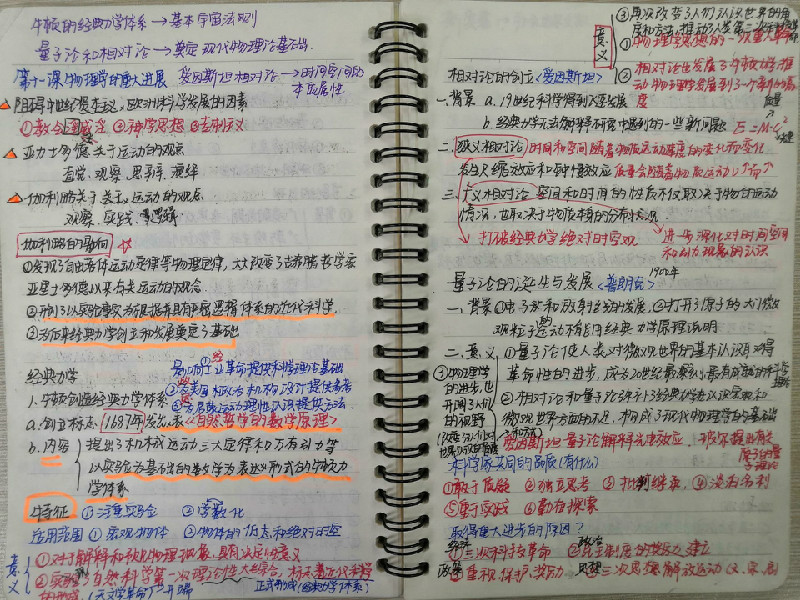 牛顿的经典力学体系→基本宇宙法则
量子论和相对论→奠定现代物理论基础.
第十一课 物理学的重大进展 爱因斯坦相对论→时间空间的本质属性
阻碍中世纪 欧洲科学发展的因素
①教会 ②神学思想
亚力士多德关于运动的观点
直觉、观察、思辨、演绎
伽利略关于 运动的观点
观察、实践
伽利略的影响
①发现了自由落体运动定律等物理定律,大大改变了
亚里士多德以来 运动的观念
②开创了以实验事实为根据并具有严密逻辑体系的近代科学.
③为后来经典力学创立和发展奠定了基础
经典力学
①为 工业革命提供科学理论基础
②为美国 机构设计提供参考
③为启蒙运动理性认识提供方法
1.牛顿创造经典力学体系
a.创立标志:1687年发表《自然哲学的数学原理》
b.内容 提出了机械运动三大定律和万有引力等
以实验为基础的以数学为表达形式的牛顿力
学体系
特征 ①注重实验 ②数学化
应用范围 ①宏观物体 ②物体的低速和绝对时空
意义 ①对于解释和预见物理现象,具有决定性意义
②实现了自然科学第一次理论性大综合,标志着近代科学
③再次改变了人们认识世界的角
意义
①物理学思想的一次重大革命
②相对论也发展了牛顿力学,推
动物理学发展到一个新的高
度
相对论的创立<爱因斯坦>
一.背景 a.19世纪科学得到大发展
b.经典力学无法解释研究中遇到的一些新问题 E=M·c²
二.狭义相对论 时间和空间随着物质运动速度的变化而变化
有名尺缩效应和钟慢效应
三.广义相对论 空间和时间的性质不仅取决于物质运动
情况,也取决于物质本身的分布状态
打破经典力学绝对时空观 进一步深化对时间空间
和运动观念的认识
量子论的诞生与发展<普朗克> 1900年
一.背景 ①电子和放射性的发展,②打开了原子的大门,微
观粒子运动不能用经典力学原理说明
二.意义 ①量子论使人类对微观世界的基本认识取得
革命性的进步,成为20世纪最深刻,最有成就的科学
②和量子论弥补了经典力学在认识宏观和
微观世界方面的不足,构成了现代物理学的基础
③物理学
的进步,也
开阔了人们
的视野
爱因斯坦量子论解释光电效应,玻尔提出有关
原子的量
子理论
科学家共同的品质(有什么)
①敢于质疑 ②独立思考 ③批判继承 ④淡泊名利
⑤勇于实践 ⑥勤奋探索
取得重大进步的原因?
经济 政治
①三次科技革命 ②民主制度的 建立
政策 思想
③重视、保护、奖励 ④三次思想解放运动